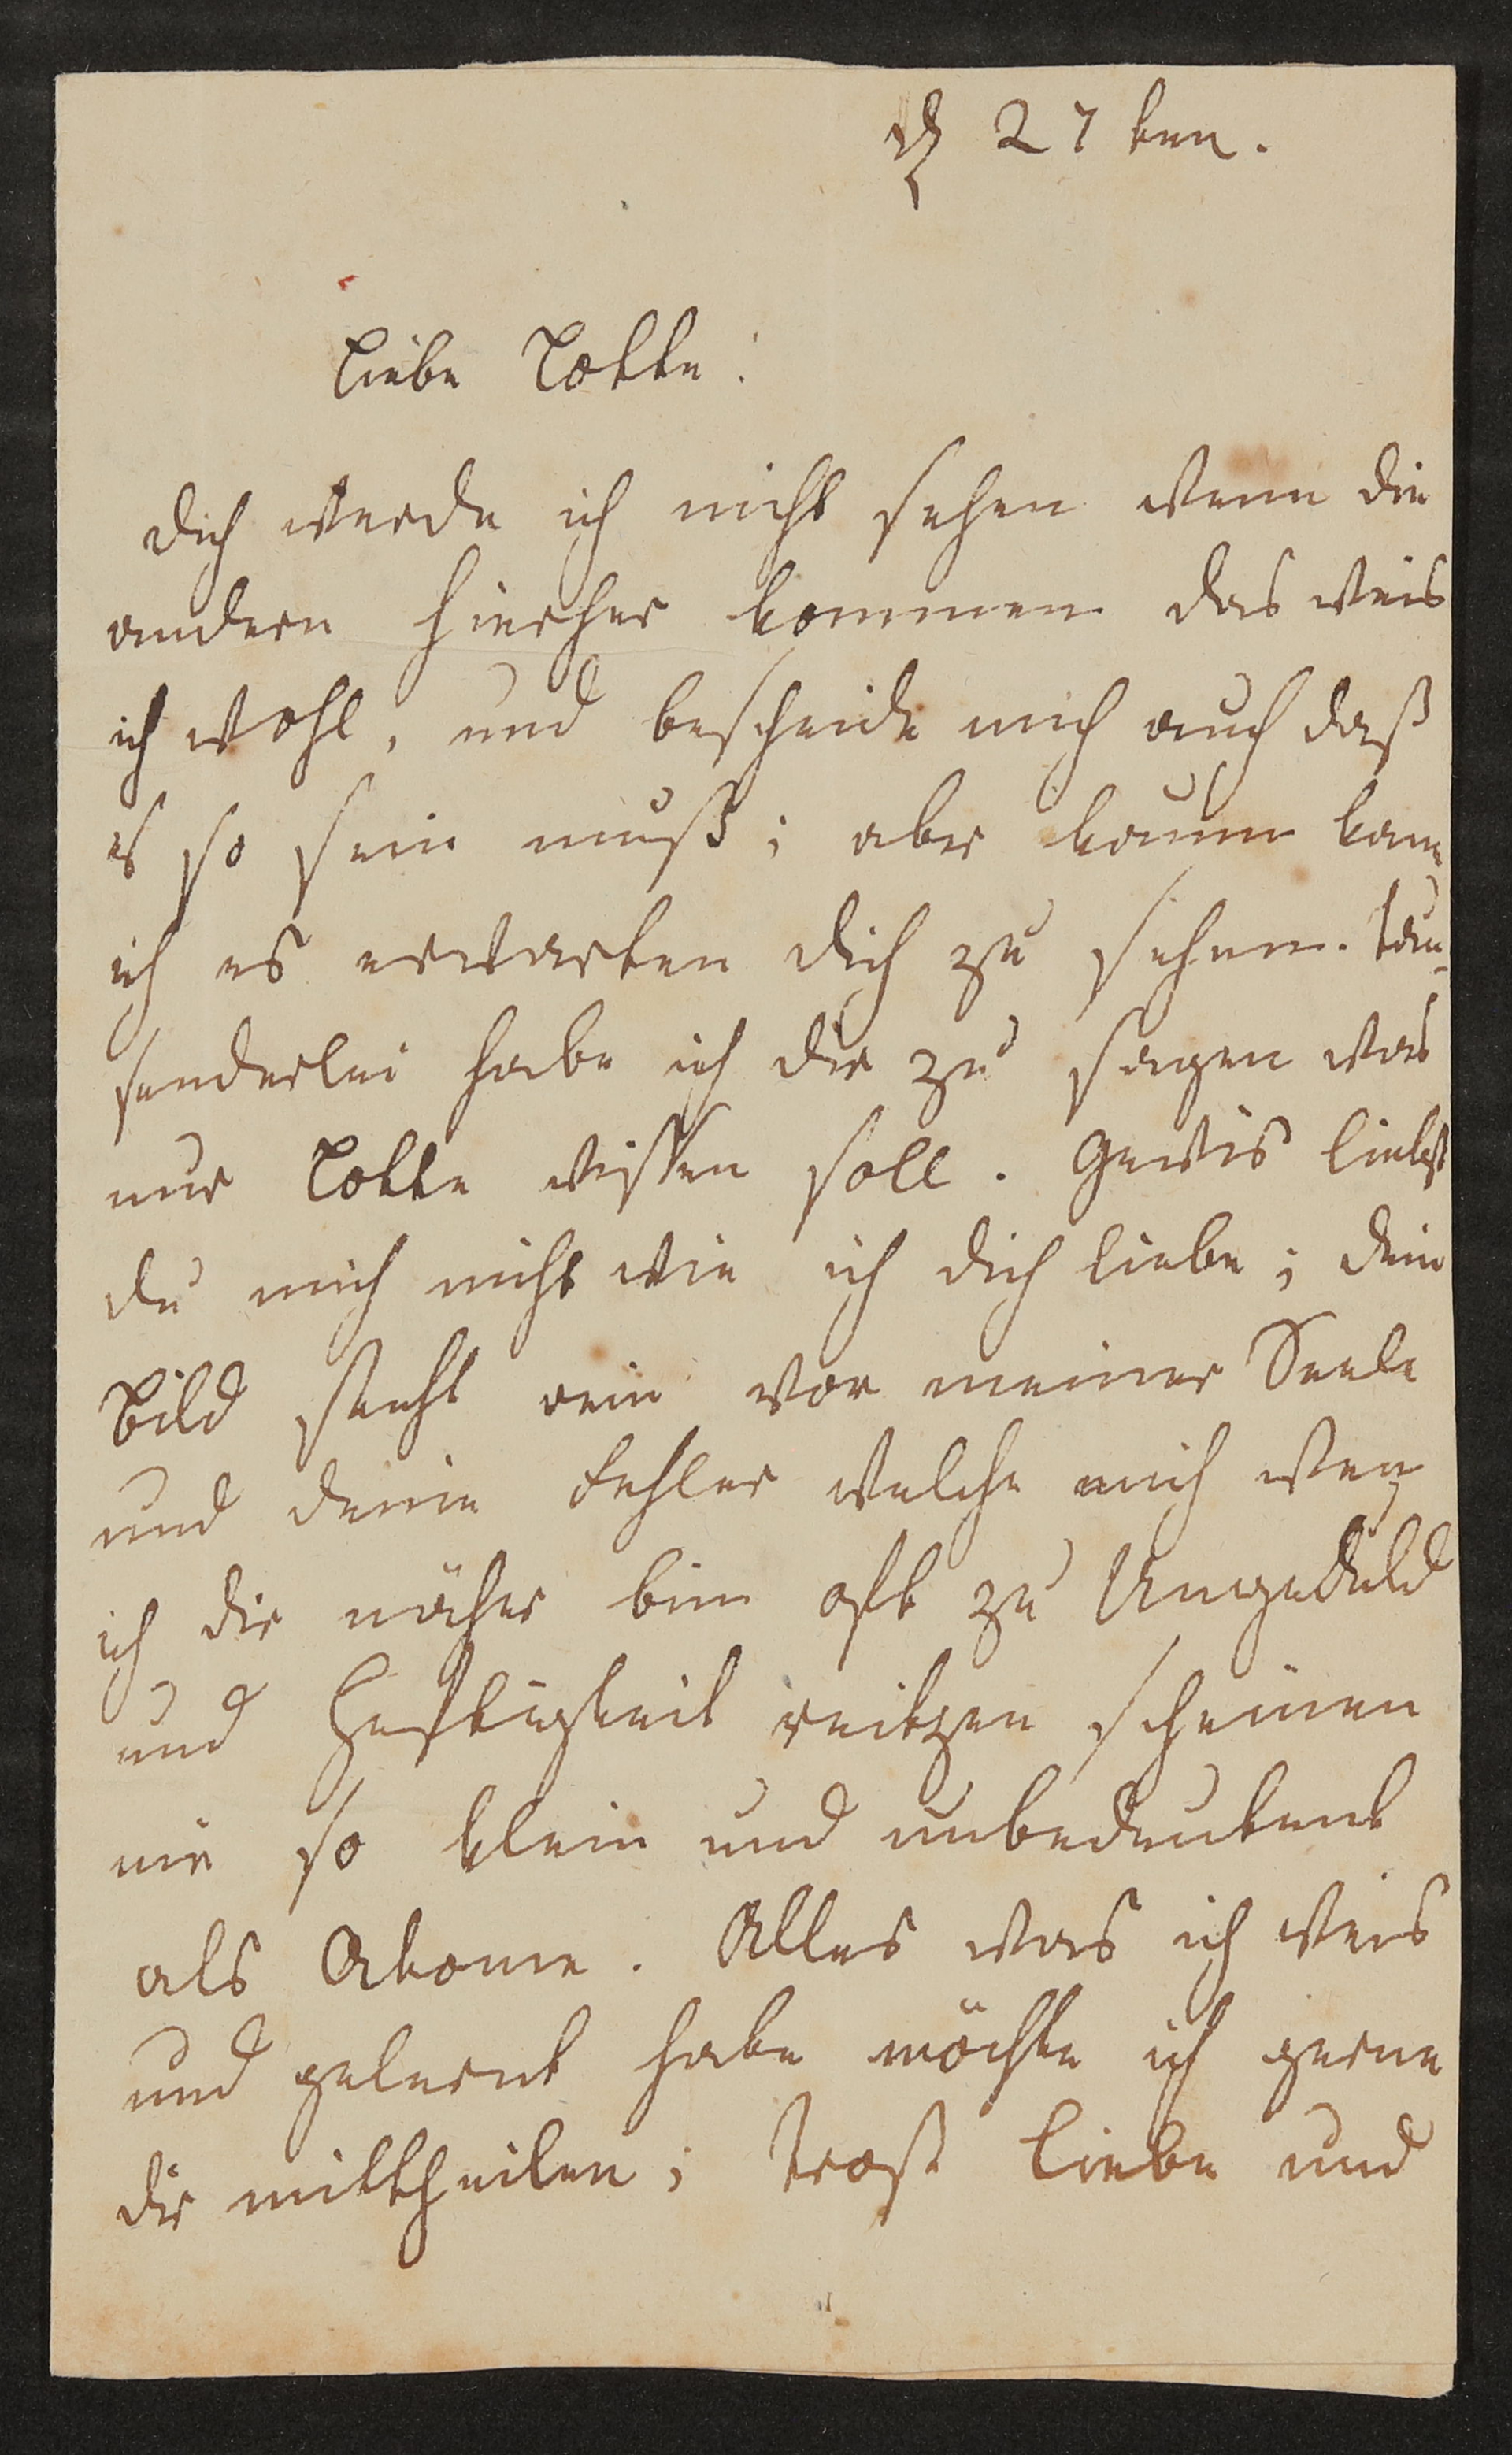 d 27 ten.
Liebe Lotte:
dich werde ich nicht sehen wenn die
andern hierher kommen das weis
ich wohl, und bescheide mich auch daß
es so sein muß; aber kaum kann
ich es erwarten dich zu sehen. Tau-
senderlei habe ich dir zu sagen was
nur Lotte wissen soll. Gewis liebst
du mich nicht wie ich dich liebe; dein
Bild steht rein vor meiner Seele
und deine Fehler welche mich wen
ich dir näher bin oft zu Ungeduld
und Heftigkeit reitzen scheinen
mir so klein und unbedeutent
als Atome. Alles was ich weis
und gelernt habe möchte ich gerne
dir mittheilen; Trost Liebe und